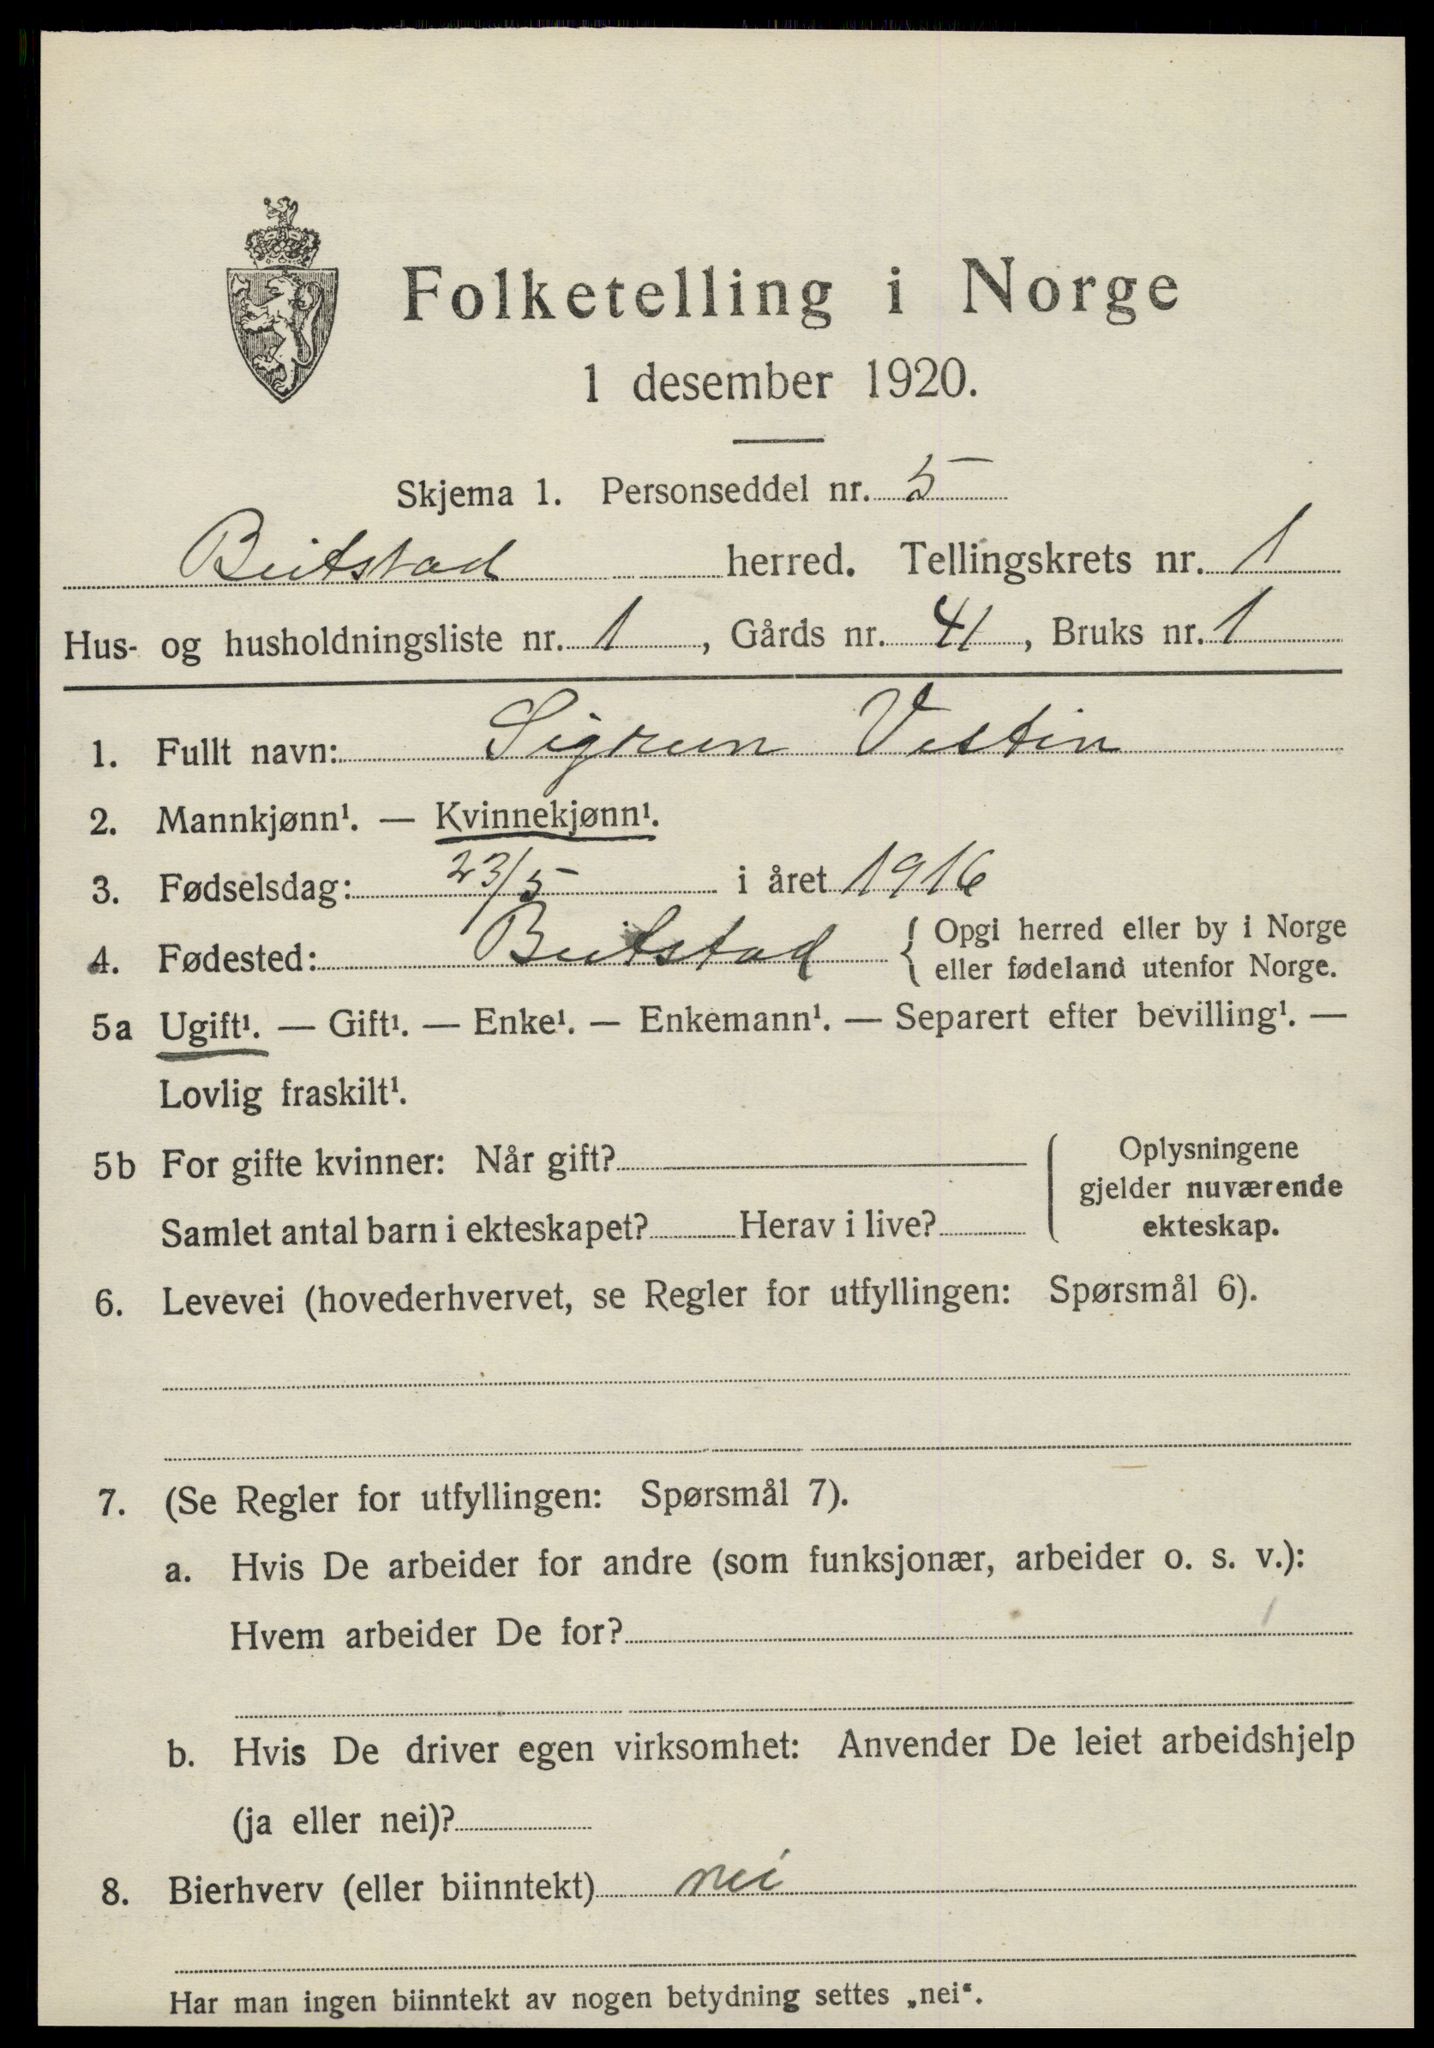 Folketelling i Norge
1 desember 1920.
Skjema 1. Personseddel nr. 5
Beitstad herred. Tellingskrets nr. 1
Hus- og husholdningsliste nr. 1, Gårds nr. 41, Bruks nr. 1
1. Fullt navn: Sigrun Vestin
2. Mannkjønn¹. — Kvinnekjønn¹.
3. Fødselsdag: 23/5 i året 1916
4. Fødested: Beitstad { Opgi herred eller by i Norge
eller fødeland utenfor Norge.
5a Ugift¹. — Gift¹. — Enke¹. — Enkemann¹. — Separert efter bevilling¹. —
Lovlig fraskilt¹.
5b For gifte kvinner: Når gift?
Samlet antal barn i ekteskapet? Herav i live?
Oplysningene
gjelder nuværende
ekteskap.
6. Levevei (hovederhvervet, se Regler for utfyllingen: Spørsmål 6).
7. (Se Regler for utfyllingen: Spørsmål 7).
a. Hvis De arbeider for andre (som funksjonær, arbeider o. s. v.):
Hvem arbeider De for?
b. Hvis De driver egen virksomhet: Anvender De leiet arbeidshjelp
(ja eller nei)?
8. Bierhverv (eller biinntekt) nei
Har man ingen biinntekt av nogen betydning settes „nei“.